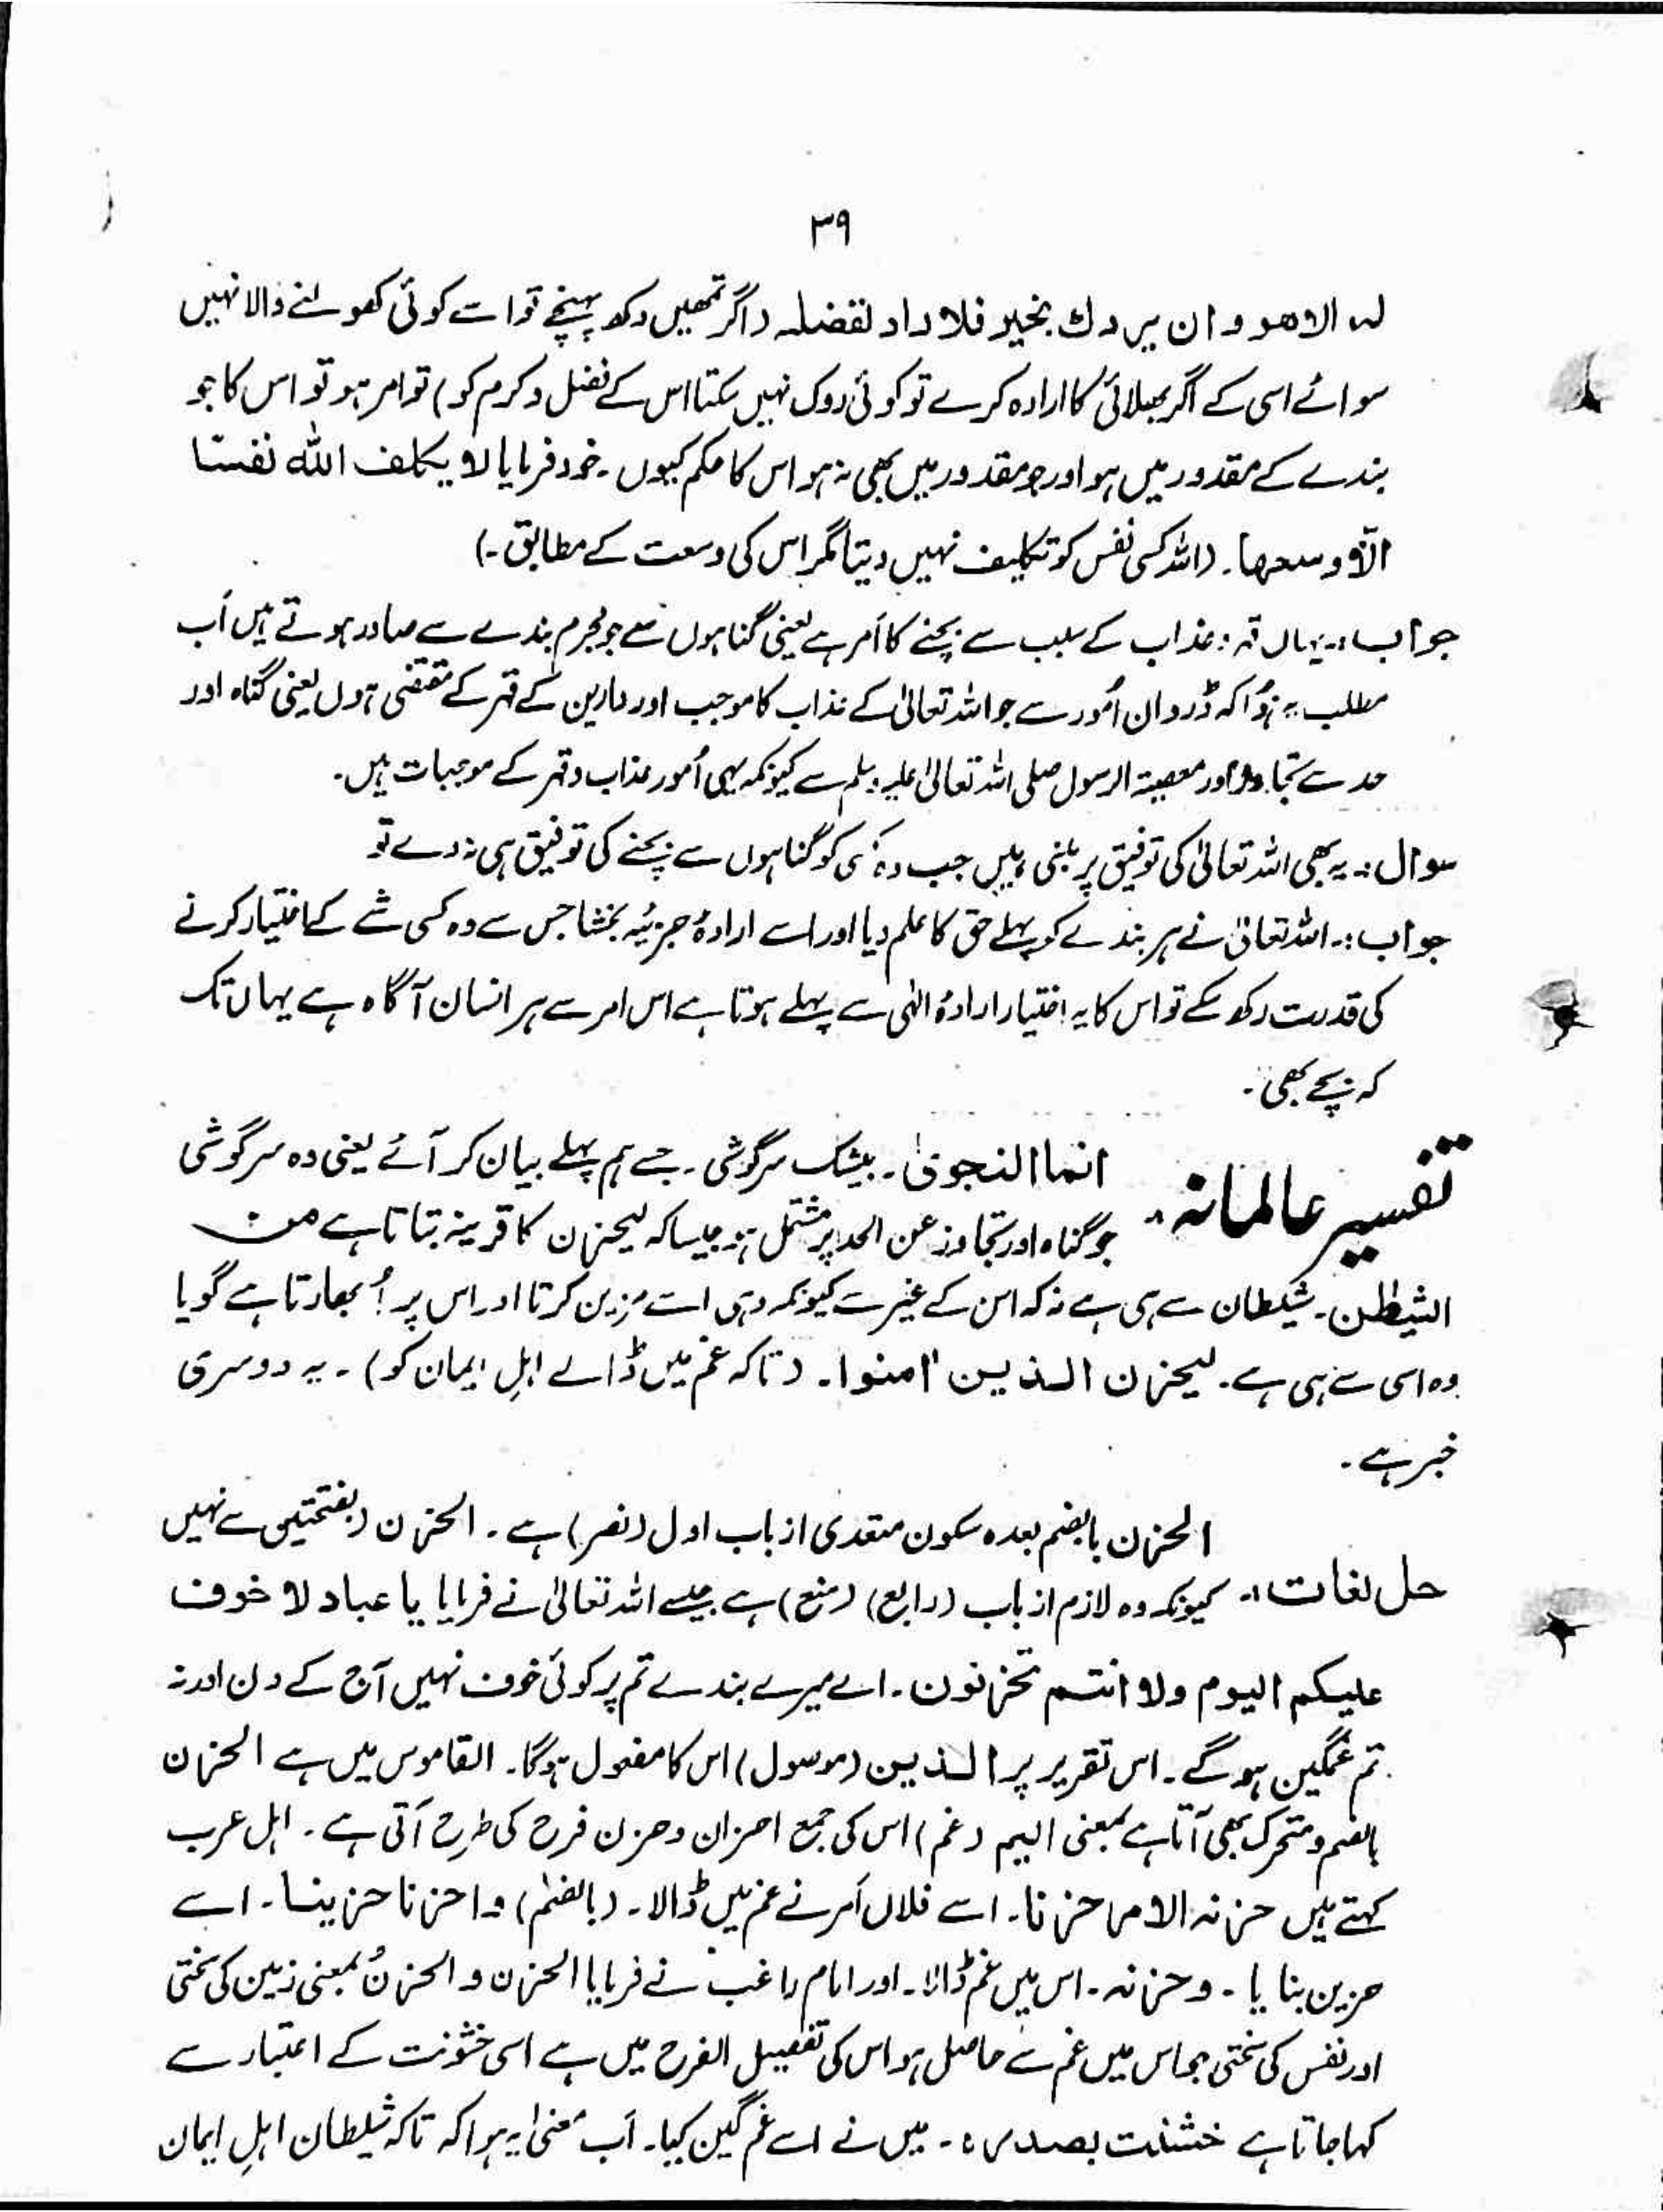 ۳۹
لہ الا ھو و ان یردك بخیر فلا راد لفضلہ (اگر تمھیں دکھ پہنچے تو اسے کوئی کھولنے والا نہیں
سوائے اسی کے اگر بھلائی کا ارادہ کرے تو کوئی روک نہیں سکتا اس کے فضل و کرم کو) تو امر ہو تو اس کا جو
بندے کے مقدور میں ہو اور جو مقدور میں بھی نہ ہو اس کا حکم کیوں ۔ خود فرمایا لا یکلف اللہ نفسًا
الّا وسعھا۔ (اللہ کسی نفس کو تکلیف نہیں دیتا مگر اس کی وسعت کے مطابق ۔)
جواب :۔ یہاں قہر و عذاب کے سبب سے بچنے کا اَمر ہے یعنی گناہوں سے جو مجرم بندے سے صادر ہوتے ہیں اَب
مطلب یہ ہُوا کہ ڈرو ان اُمور سے جو اللہ تعالیٰ کے عذاب کا موجب اور دارین کے قہر کے مقتضی ہوں یعنی گناہ اور
حد سے تجاوز اور معصیۃ الرسول صلی اللہ تعالیٰ علیہ وسلم سے کیونکہ یہی اُمور عذاب و قہر کے موجبات ہیں۔
سوال :۔ یہ بھی اللہ تعالیٰ کی توفیق پر مبنی ہیں جب وہ کسی کو گناہوں سے بچنے کی توفیق ہی نہ دے تو
جواب :۔ اللہ تعالیٰ نے ہر بندے کو پہلے حق کا علم دیا اور اسے ارادۂ جزئیہ بخشا جس سے وہ کسی شے کے اختیار کرنے
کی قدرت رکھ سکے تو اس کا یہ اختیار ارادۂ الٰہی سے پہلے ہوتا ہے اس امر سے ہر انسان آگاہ ہے یہاں تک
کہ بچے بھی ۔
تفسیر عالمانہ :۔ انما النجویٰ ۔ بیشک سرگوشی ۔ جسے ہم پہلے بیان کر آئے یعنی وہ سرگوشی
جو گناہ اور تجاوز عن الحد پر مشتمل ہو جیسا کہ لیحزن کا قرینہ بتاتا ہے من
الشیطٰن۔ شیطان سے ہی ہے نہ کہ اس کے غیر سے کیونکہ وہی اسے مزین کرتا اور اس پر اُبھارتا ہے گویا
وہ اسی سے ہی ہے ۔ لیحزن الذین اٰمنوا ۔ (تاکہ غم میں ڈالے اہلِ ایمان کو) ۔ یہ دوسری
خبر ہے ۔
حل لغات :۔ الحزن بالضم بعدہ سکون متعدی از باب اول (نصر) ہے ۔ الحزن (بفتحتین سے نہیں
کیونکہ وہ لازم از باب (رابع) (منع) ہے جیسے اللہ تعالیٰ نے فرمایا یا عباد لا خوف
علیکم الیوم ولا انتم تحزنون ۔ اے میرے بندے تم پر کوئی خوف نہیں آج کے دن اور نہ
تم غمگین ہو گے ۔ اس تقریر پر الذین (موصول) اس کا مفعول ہوگا ۔ القاموس میں ہے الحزن
بالضم و متحرک بھی آتا ہے بمعنی الہم (غم) اس کی جمع احزان و حزن فرح کی طرح آتی ہے ۔ اہل عرب
کہتے ہیں حزنہ الامر حزنا ۔ اسے فلاں اَمر نے غم میں ڈالا ۔ (بالضم) و احزنا حزینا ۔ اسے
حزین بنایا ۔ و حزنہ ۔ اس میں غم ڈالا ۔ اور امام راغب نے فرمایا الحزن و الحزنُ بمعنی زمین کی سختی
اور نفس کی سختی جو اس میں غم سے حاصل ہو اس کی تفصیل الفرح میں ہے اسی خشونت کے اعتبار سے
کہا جاتا ہے خشنت بصدرہ ۔ میں نے اسے غم گین کیا ۔ اَب معنیٰ یہ ہوا کہ تاکہ شیطان اہلِ ایمان